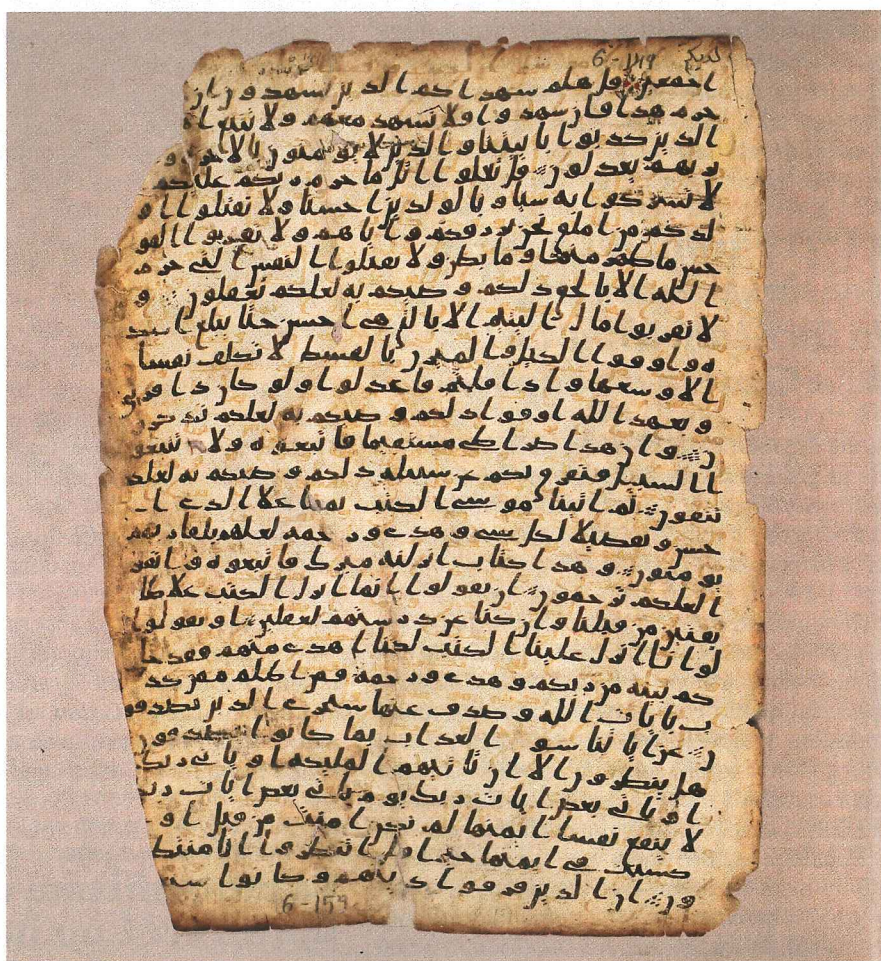 6-149
اجمعين قل هلم شهداكم الذين يشهدون ان
حرم هذا فان شهدوا فلا تشهد معهم ولا تتبع ا
الذين كذبوا باييتنا والذين لا يومنون بالاخره و
بربهم يعدلون قل تعلوا اتل ما حرم ربكم عليكم
لا تشركوا به شيا وبالولدين احسنا ولا تقتلوا او
لدكم من املق نحن نرزقكم واياهم ولا تقربوا الفو
حش ما ظهر منها وما بطن ولا تقتلوا النفس التي حرم
الله الا بالحق ذلكم وصيكم به لعلكم تعقلون و
لا تقربوا مال اليتيم الا بالتي هي احسن حتا يبلغ اشد
ه واوفوا الكيل والميزن بالقسط لا نكلف نفسا
الا وسعها واذا قلتم فاعدلوا ولو كان ذا قربى
وبعهد الله اوفوا ذلكم وصيكم به لعلكم تذكرو
ن وان هذا صرطي مستقيما فاتبعوه ولا تتبعو
ا السبل فتفرق بكم عن سبيله ذلكم وصيكم به لعلكم
تتقون ثم اتينا موسى الكتب تماما علا الذي ا
حسن وتفصيلا لكل شي وهدى ورحمه لعلهم بلقا ربهم
يومنون وهذا كتاب انزلنه مبرك فاتبعوه واتقو
ا لعلكم ترحمون ان يقولوا انما انزل الكتب علا طا
يفتين من قبلنا وان كنا عن درستهم لغفلين او يقولوا
لو انا انزل علينا الكتب لكنا اهدى منهم فقد جا
كم بينه من ربكم وهدى ورحمه فمن اظلم ممن كذ
ب بايات الله وصدف عنها سنجزي الذين يصدفو
ن عن ايتنا سو العذاب بما كانوا يصدفون
هل ينظرون الا ان تاتيهم المليكه او ياتي ربك
او ياتي بعض ايات ربك يوم ياتي بعض ايات ربك
لا ينفع نفسا ايمنها لم تكن امنت من قبل او
كسبت في ايمنها خيرا قل انتظروا انا منتظر
ون ان الذين فرقوا دينهم وكانوا شيعا
6-159